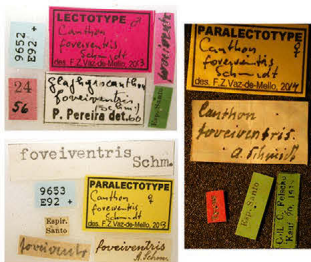 LECTOTYPE ♂
Canthon
foveiventris
Schmidt
des. F.Z.Vaz-de-Mello, 2013
9652
E92 +
foveiventris
24
56
Glaphyrocanthon
foveiventris
(Schm.)
P. Pereira det.
Esp. Santo
foveiventris
Schm.
9653
E92 +
PARALECTOTYPE
Canthon ♀
foveiventris
Schmidt
des. F.Z.Vaz-de-Mello, 2013
Espir.
Santo
foveiventris
foveiventris
A. Schm.
PARALECTOTYPE
Canthon ♀
foveiventris
Schmidt
des. F.Z.Vaz-de-Mello, 2014
Canthon
foveiventris.
A. Schmidt
Esp. Santo
Coll. C. Felsche
Kauf 20, 1918